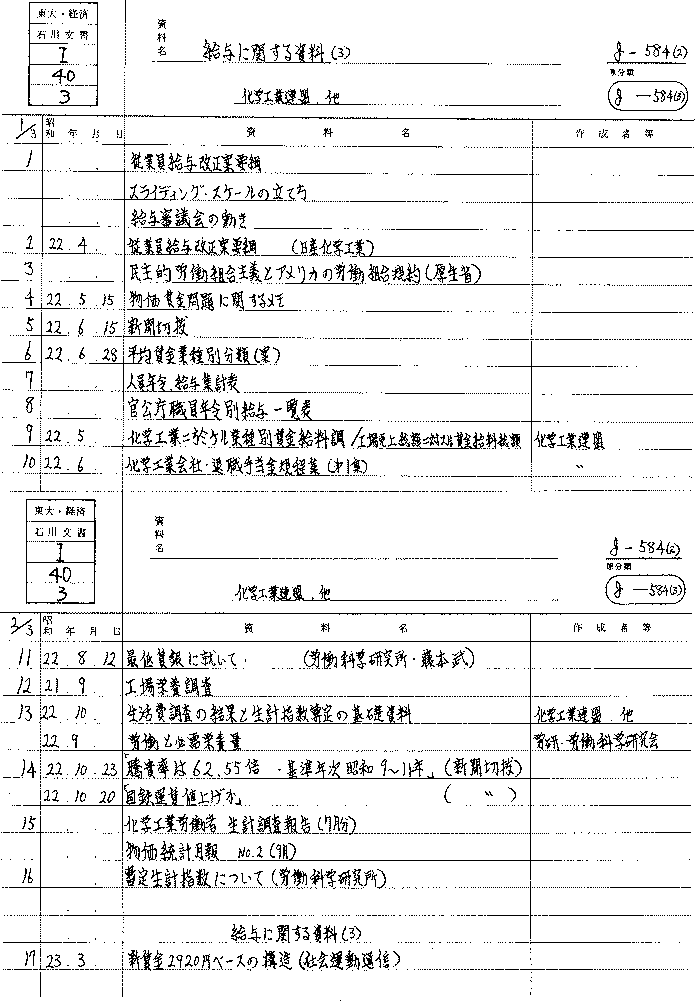 東大・経済
石川文書
I
40
3
資料名 給与に関する資料(3)
化学工業連盟、他
J-584(2)
原分類
J-584(3)
1/3 昭和 年 月 日 資 料 名 作成者等
1 従業員給与改正案要綱
スライディング・スケールの立てち
給与審議会の動き
2 22. 4 従業員給与改正案要綱 (日産化学工業)
3 民主的労働組合主義とアメリカの労働組合規約(厚生省)
4 22 5 15 物価賃金問題に関するメモ
5 22. 6. 15 新聞切抜
6 22. 6 28 平均賃金業種別分類(案)
7 人員年令、給与集計表
8 官公庁職員年令別給与一覧表
9 22. 5 化学工業ニ於ケル業種別賃金給料調/工場売上総額ニ対スル賃金給料総額 化学工業連盟
10 22. 6 化学工業会社・退職手当金規程集(オ1集) 〃
東大・経済
石川文書
I
40
3
資料名
化学工業連盟、他
J-584(2)
原分類
J-584(3)
2/3 昭和 年 月 日 資 料 名 作成者等
11 22. 8. 12 最低賃銀に就いて・ (労働科学研究所・藤本武)
12 21. 9 工場栄養調査
13 22. 10 生活費調査の結果と生計指数算定の基礎資料 化学工業連盟、他
22. 9 労働と必需栄養量 労研・労働科学研究会
14 22. 10. 23 「騰貴率は62.55倍・基準年次昭和9〜11年」(新聞切抜)
22. 10 20 「国鉄運賃値上げか」 ( 〃 )
15 化学工業労働者生計調査報告(7月分)
物価統計月報 No.2(9月)
16 暫定生計指数について(労働科学研究所)
給与に関する資料(3)
17 23. 3 新賃金2920円ベースの構造(社会運動通信)